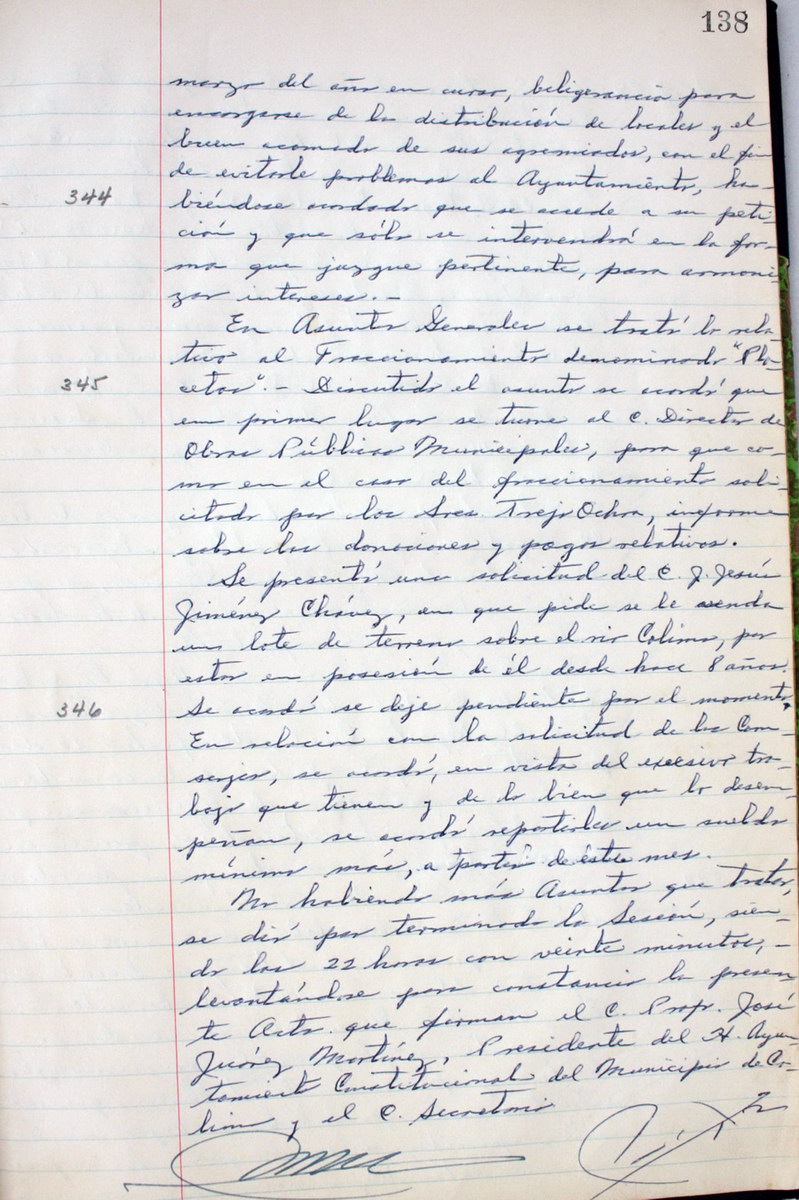 138
marzo del año en curso, beligerancia para
encargarse de la distribución de locales y el
buen acomodo de sus agremiados, con el fin
de evitarle problemas al Ayuntamiento, ha-
344
biéndose acordado que se accede a su peti-
ción y que sólo se intervendrá en la for-
ma que juzgue pertinente, para armoni-
zar intereses.-
En Asuntos Generales se trató lo rela-
tivo al Fraccionamiento denominado "Pla-
345
cetas".- Discutido el asunto se acordó que
en primer lugar se turne al C. Director de
Obras Públicas Municipales, para que co-
mo en el caso del fraccionamiento soli-
citado por los Sres Trejo Ochoa, informe
sobre las donaciones y pagos relativos.
Se presentó una solicitud del C. J. Jesús
Jiménez Chávez, en que pide se le venda
un lote de terreno sobre el río Colima, por
estar en posesión de él desde hace 8 años.
346
Se acordó se deje pendiente por el momento.
En relación con la solicitud de los Con-
serjes, se acordó, en vista del excesivo tra-
bajo que tienen y de lo bien que lo desem-
peñan, se acordó repartirles un sueldo
mínimo más, a partir de éste mes.
No habiendo más Asuntos que tratar,
se dió por terminada la Sesión, sien-
do las 22 horas con veinte minutos, -
levantándose para constancia la presen
te Acta que firman el C. Profr. José
Juárez Martínez, Presidente del H. Ayun-
tamiento Constitucional del Municipio de Co-
lima y el C. Secretario